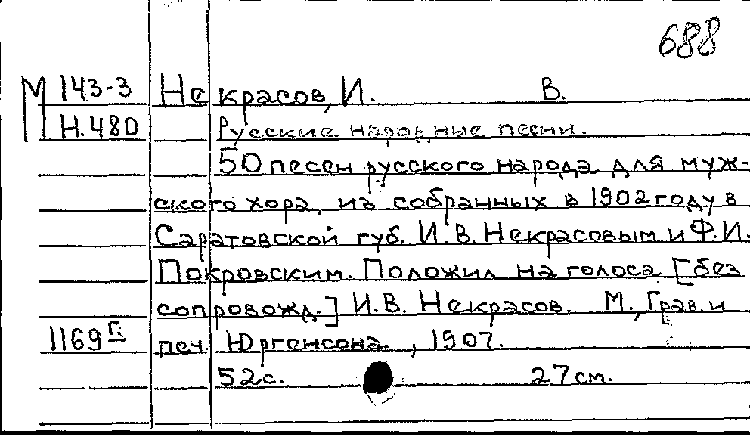 688
М 143-3 Некрасов, И. В.
Н.480 Русские народные песни.
50 песен русского народа для муж-
ского хора, из собранных в 1902 году в
Саратовской губ. И.В. Некрасовым и Ф.И.
Покровским. Положил на голоса [без
сопровожд.] И.В. Некрасов. М., Грав. и
1169 г. печ. Юргенсона, 1907.
52 с. 27 см.